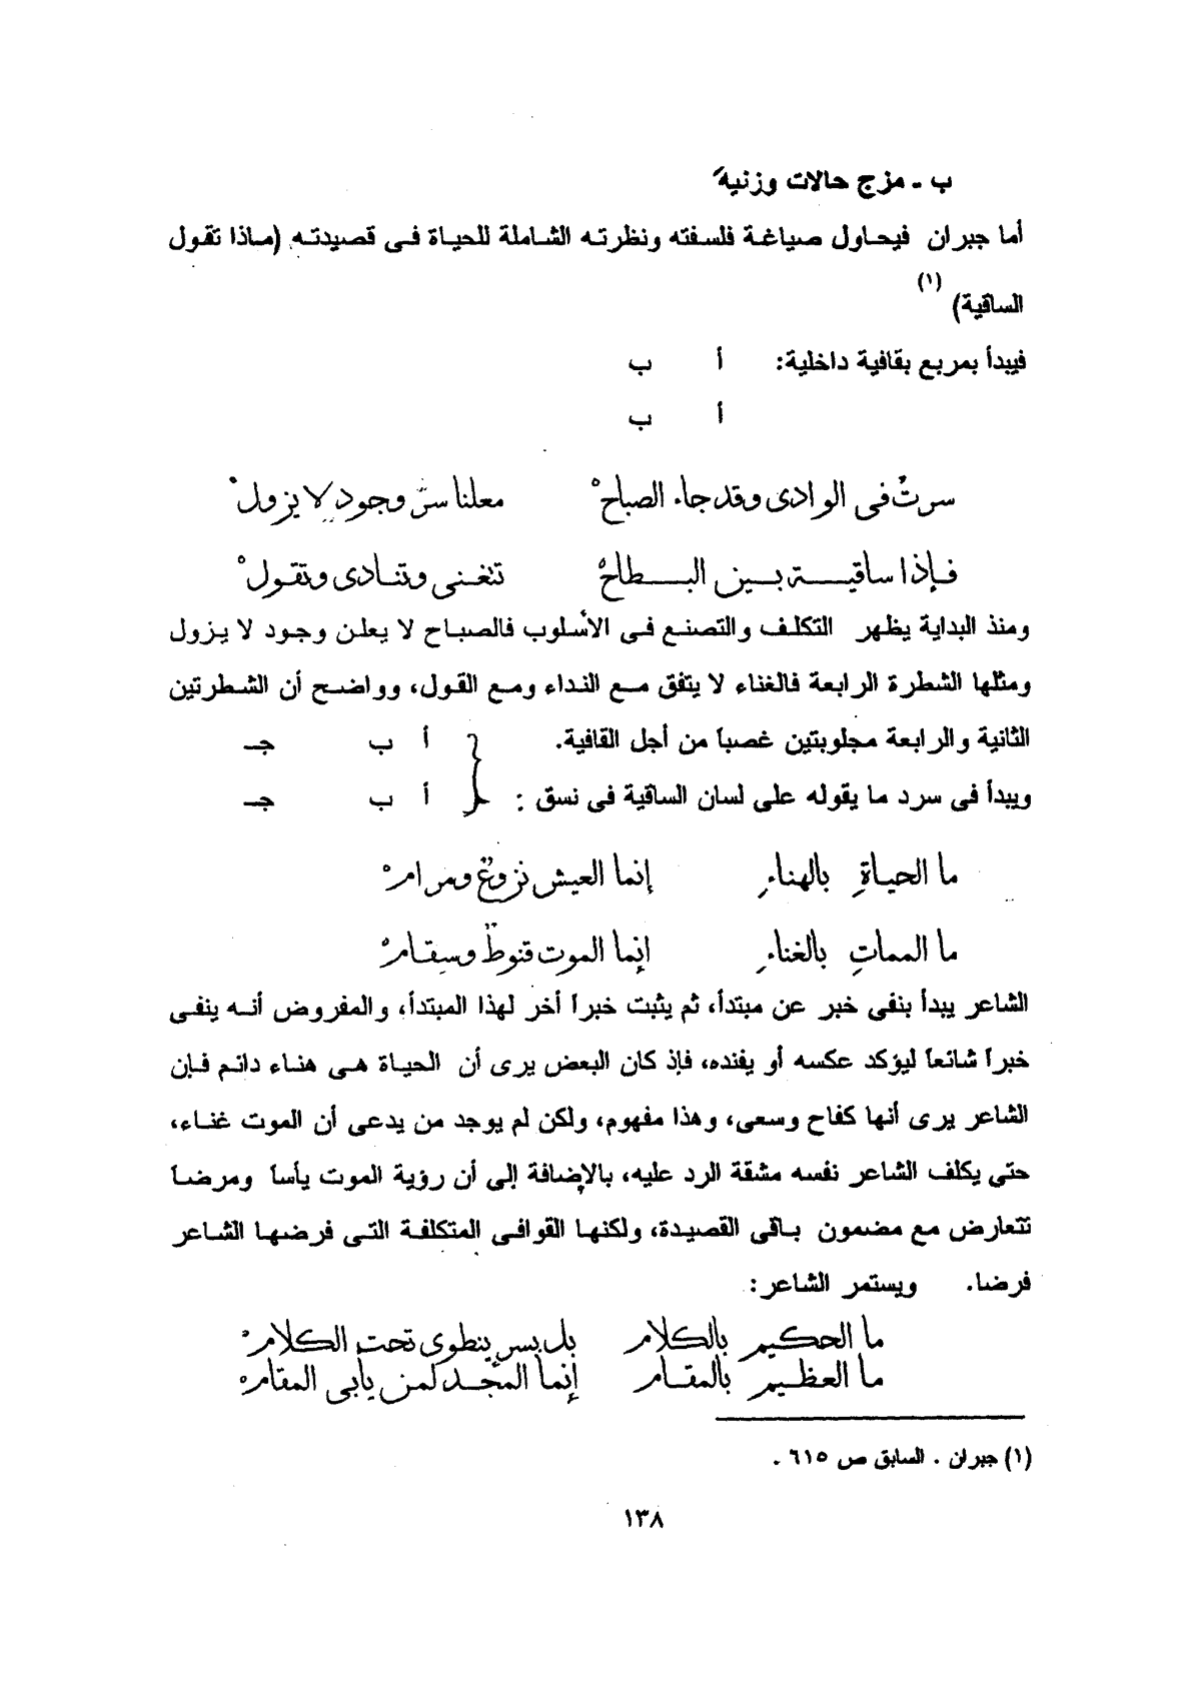 ب ـ مزج حالات وزنية
أما جبران فيحاول صياغة فلسفته ونظرته الشاملة للحياة فى قصيدته (ماذا تقول
الساقية) (١)
فيبدأ بمربع بقافية داخلية: أ ب
أ ب
سرتُ فى الوادى وقد جاء الصباحْ معلنا سرَّ وجودٍ لا يزولْ
فإذا ساقية بين البطاحْ تتغنى وتنادى وتقولْ
ومنذ البداية يظهر التكلف والتصنع فى الأسلوب فالصباح لا يعلن وجود لا يزول
ومثلها الشطرة الرابعة فالغناء لا يتفق مع النداء ومع القول، وواضح أن الشطرتين
الثانية والرابعة مجلوبتين غصباً من أجل القافية. أ ب جـ
ويبدأ فى سرد ما يقوله على لسان الساقية فى نسق : أ ب جـ
ما الحياةِ بالهناءِ إنما العيش نزوعٌ ومرامْ
ما المماتِ بالغناءِ إنما الموت قنوطٌ وسقامْ
الشاعر يبدأ بنفى خبر عن مبتدأ، ثم يثبت خبراً أخر لهذا المبتدأ، والمفروض أنه ينفى
خبراً شائعاً ليؤكد عكسه أو يفنده، فإذ كان البعض يرى أن الحياة هى هناء دائم فإن
الشاعر يرى أنها كفاح وسعى، وهذا مفهوم، ولكن لم يوجد من يدعى أن الموت غناء،
حتى يكلف الشاعر نفسه مشقة الرد عليه، بالإضافة إلى أن رؤية الموت يأساً ومرضاً
تتعارض مع مضمون باقى القصيدة، ولكنها القوافى المتكلفة التى فرضها الشاعر
فرضا. ويستمر الشاعر:
ما الحكيم بالكلام بل بسر ينطوى تحت الكلامْ
ما العظيم بالمقام إنما المجد لمن يأبى المقامْ
(١) جبران . السابق ص ٦١٥ .
١٣٨